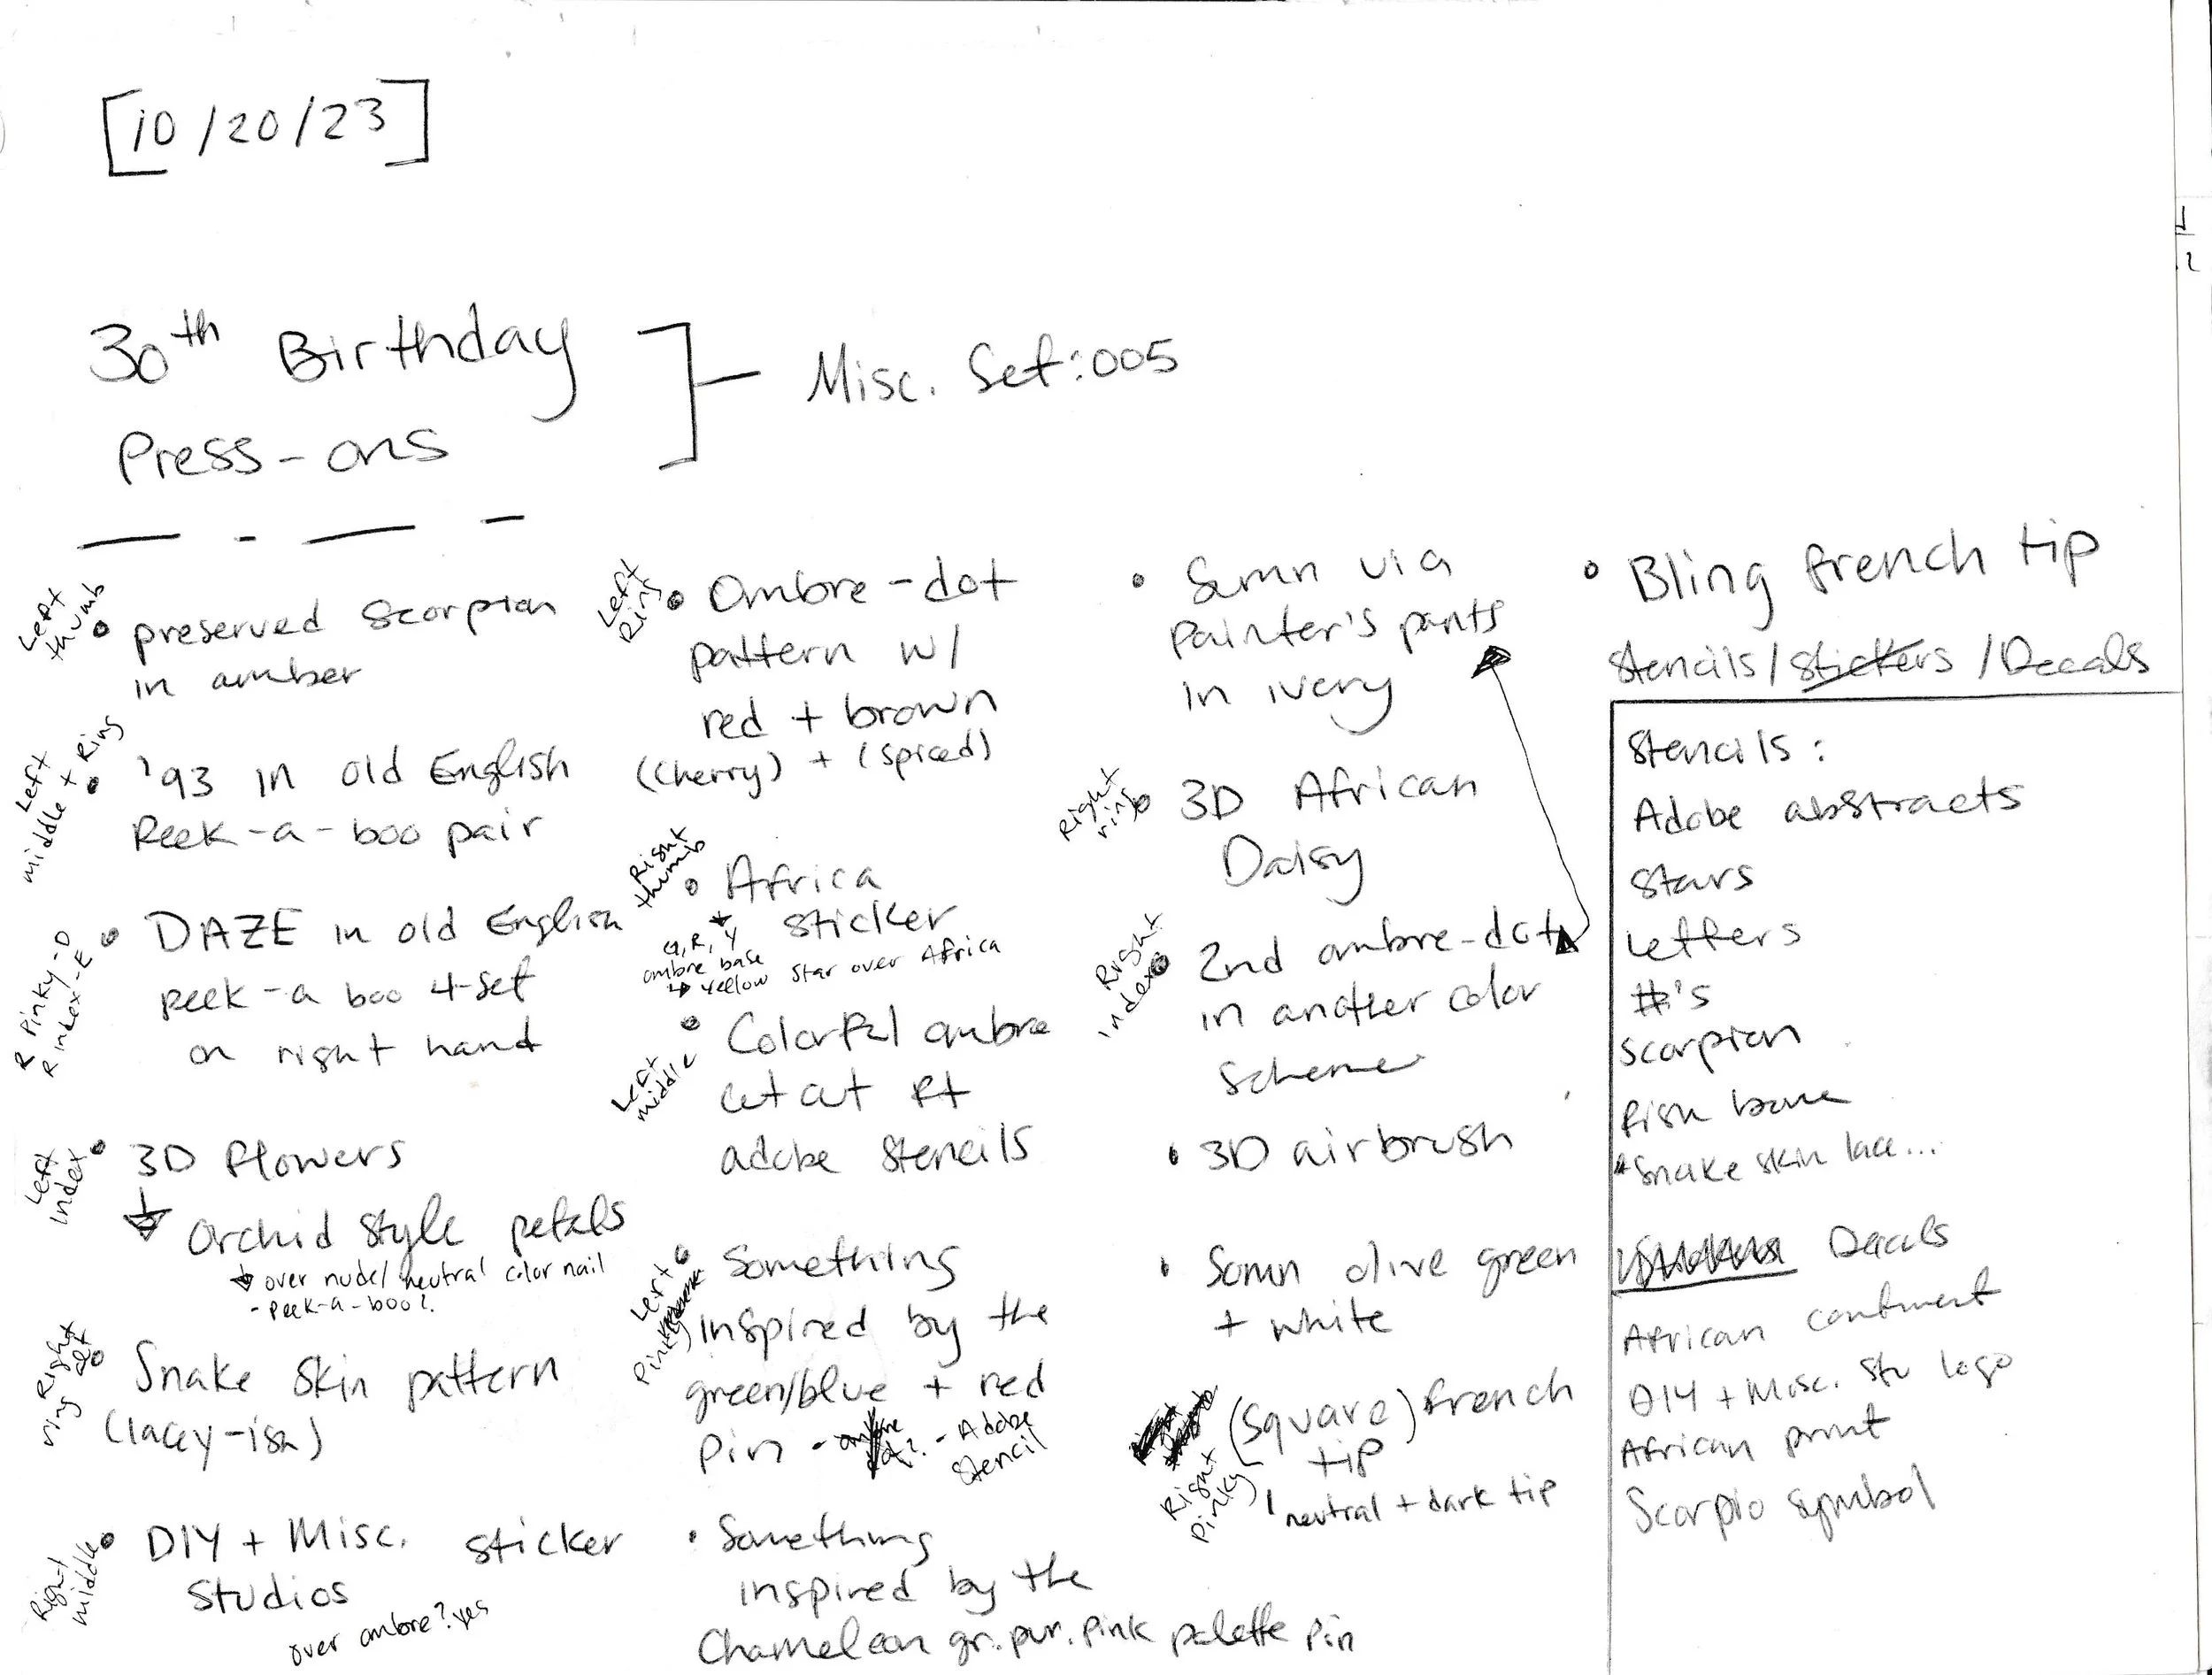 [10/20/23]
30th Birthday
Press-ons
Misc. Set:005
Left
thumb
• preserved scorpion
in amber
Left
middle + Ring
• '93 in old English
Peek-a-boo pair
R Pinky-D
R index-E
• DAZE in old English
peek-a boo 4-set
on right hand
Left
index
• 3D flowers
orchid style petals
over nude/neutral color nail
- peek-a-boo?
Right
ring alt
• Snake skin pattern
(lacey-ish)
Right
middle
• DIY + Misc. sticker
Studios
over ombre? yes
Left
Ring
• Ombre-dot
pattern w/
red + brown
(cherry) + (spiced)
Right
thumb
• Africa
sticker
G, R, Y
ombre base
yellow star over Africa
Left
middle
• Colorful ombre
cut out ft
adobe stencils
Left
Pinky
• Something
inspired by the
green/blue + red
pin - Adobe
stencil
• Something
inspired by the
Chameleon gr. pur. pink palette pin
• Sumn via
painter's pants
in ivory
Right
ring
• 3D African
Daisy
Right
index
• 2nd ombre-dot
in another color
scheme
• 3D airbrush
• Somn olive green
+ white
Right
Pinky
(square) french
tip
neutral + dark tip
• Bling french tip
Stencils/Stickers/Decals
Stencils:
Adobe abstracts
Stars
Letters
#'s
Scorpion
fish bone
*Snake skin lace...
Decals
African continent
DIY + Misc. Stu logo
African print
Scorpio symbol